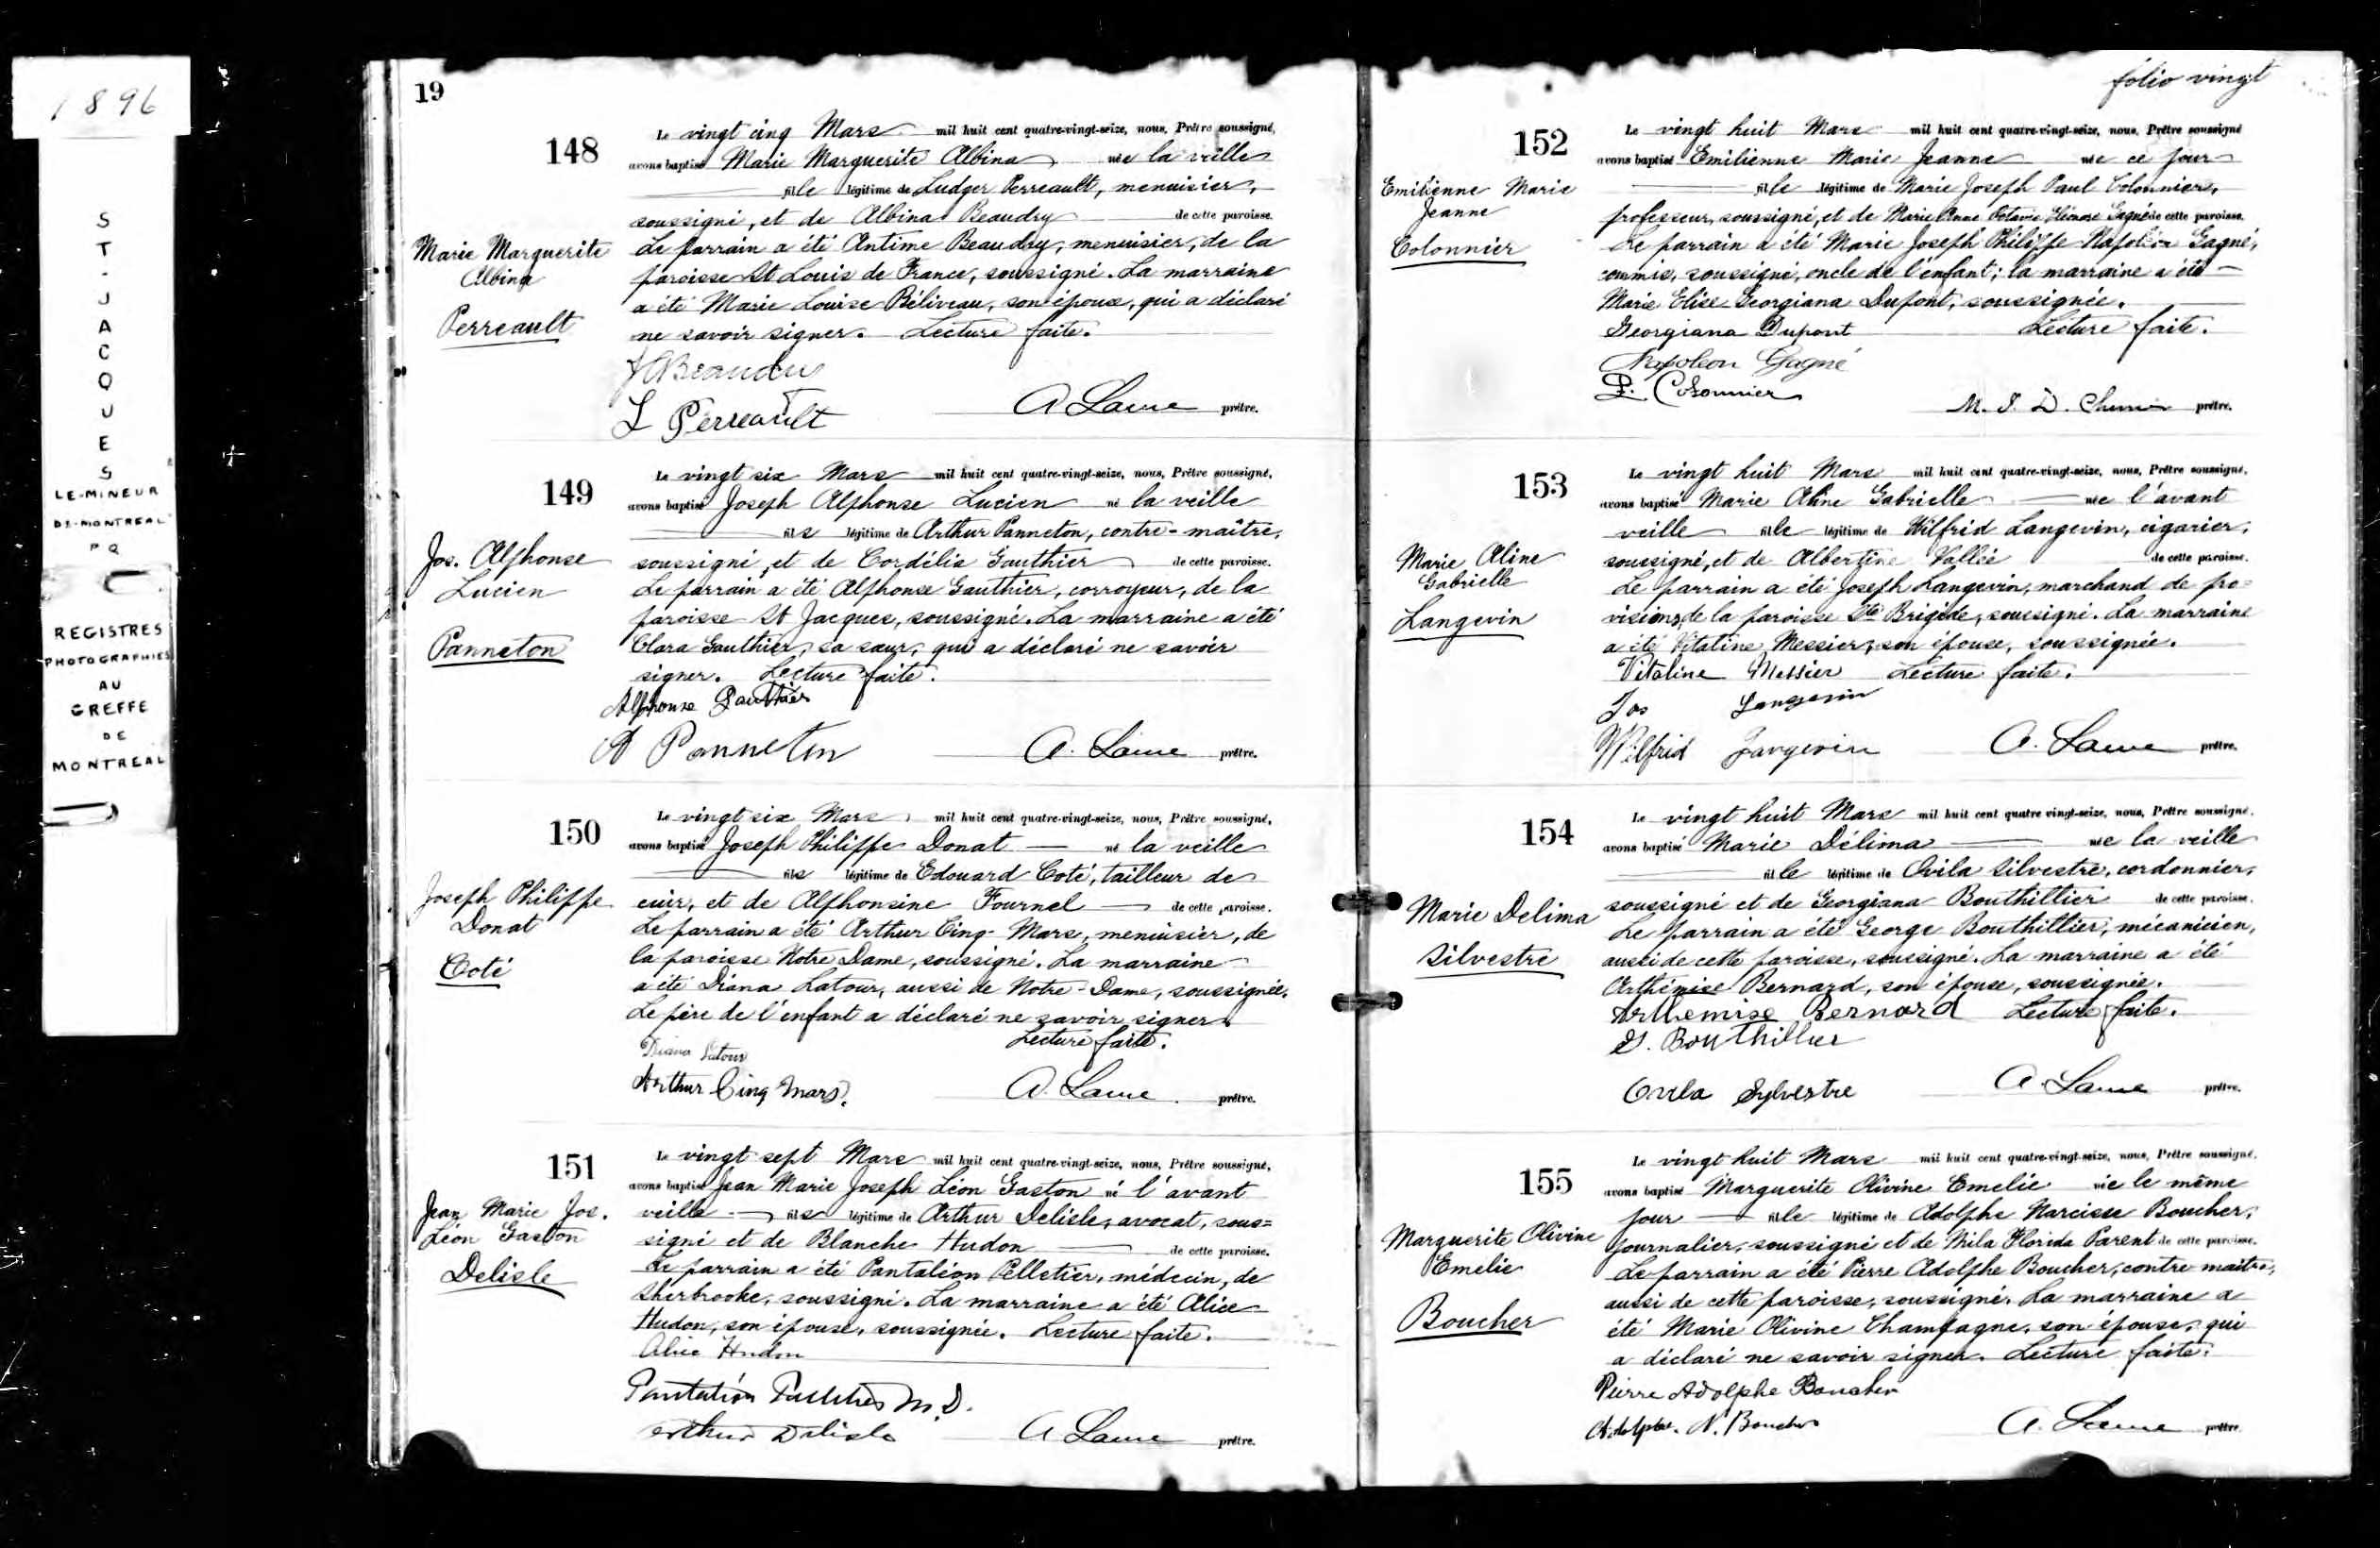 1896
ST-JACQUES
LE-MINEUR
DE-MONTREAL
P Q
REGISTRES
PHOTOGRAPHIES
AU
GREFFE
DE
MONTREAL
19
148
Marie Marguerite
Albina
Perreault
Le vingt cinq Mars mil huit cent quatre-vingt-seize, nous, Prêtre soussigné,
avons baptisé Marie Marguerite Albina née la veille
fille légitime de Ludger Perreault, menuisier,
soussigné, et de Albina Beaudry de cette paroisse.
Le parrain a été Antime Beaudry, menuisier, de la
paroisse St Louis de France, soussigné. La marraine
a été Marie Louise Béliveau, son épouse, qui a déclaré
ne savoir signer. Lecture faite.
L Perreault
prêtre.
149
Jos. Alphonse
Lucien
Panneton
Le vingt six Mars mil huit cent quatre-vingt-seize, nous, Prêtre soussigné,
avons baptisé Joseph Alphonse Lucien né la veille
fils légitime de Arthur Panneton, contre-maître,
soussigné, et de Cordélia Gauthier de cette paroisse.
Le parrain a été Alphonse Gauthier, corroyeur, de la
paroisse St Jacques, soussigné. La marraine a été
Clara Gauthier, sa sœur, qui a déclaré ne savoir
signer. Lecture faite.
Alphonse Gauthier
A Panneton
prêtre.
150
Joseph Philippe
Donat
Coté
Le vingt six Mars mil huit cent quatre-vingt-seize, nous, Prêtre soussigné,
avons baptisé Joseph Philippe Donat né la veille
fils légitime de Edouard Coté, tailleur de
cuir, et de Alphonsine Fournel de cette paroisse.
Le parrain a été Arthur Cinq-Mars, menuisier, de
la paroisse Notre Dame, soussigné. La marraine
a été Diana Latour, aussi de Notre-Dame, soussignée.
Le père de l'enfant a déclaré ne savoir signer.
Lecture faite.
Diana Latour
Arthur Cinq Mars.
prêtre.
151
Jean Marie Jos.
Léon Gaston
Delisle
Le vingt sept Mars mil huit cent quatre-vingt-seize, nous, Prêtre soussigné,
avons baptisé Jean Marie Joseph Léon Gaston né l'avant
veille fils légitime de Arthur Delisle, avocat, sous=
signé et de Blanche Hudon de cette paroisse.
Le parrain a été Pantaléon Pelletier, médecin, de
Sherbrooke, soussigné. La marraine a été Alice
Hudon, son épouse, soussignée. Lecture faite.
Alice Hudon
Pantaléon Pelletier M.D.
Arthur Delisle
prêtre.
folio vingt
152
Emilienne Marie
Jeanne
Colonnier
Le vingt huit Mars mil huit cent quatre-vingt-seize, nous, Prêtre soussigné
avons baptisé Emilienne Marie Jeanne née ce jour
fille légitime de Marie Joseph Paul Colonnier,
professeur, soussigné, et de Marie Anne Octavie Gagné de cette paroisse.
Le parrain a été Marie Joseph Philippe Napoléon Gagné,
commis, soussigné, oncle de l'enfant; la marraine a été
Marie Elise Georgiana Dupont, soussignée.
Georgiana Dupont Lecture faite.
Napoleon Gagné
P. Colonnier
prêtre.
153
Marie Aline
Gabrielle
Langevin
Le vingt huit Mars mil huit cent quatre-vingt-seize, nous, Prêtre soussigné,
avons baptisé Marie Aline Gabrielle née l'avant
veille fille légitime de Wilfrid Langevin, cigarier,
soussigné, et de Albertine Vallée de cette paroisse.
Le parrain a été Joseph Langevin, marchand de pro=
visions, de la paroisse Ste Brigide, soussigné. La marraine
a été Vitaline Messier, son épouse, soussignée.
Vitaline Messier Lecture faite.
Jos Langevin
Wilfrid Langevin
prêtre.
154
Marie Delima
Silvestre
Le vingt huit Mars mil huit cent quatre vingt-seize, nous, Prêtre soussigné,
avons baptisé Marie Délima née la veille
fille légitime de Ovila Silvestre, cordonnier,
soussigné et de Georgiana Bouthillier de cette paroisse.
Le parrain a été George Bouthillier, mécanicien,
aussi de cette paroisse, soussigné. La marraine a été
Arthémise Bernard, son épouse, soussignée.
Arthemise Bernard Lecture faite.
G. Bouthillier
Ovila Sylvestre
prêtre.
155
Marguerite Olivine
Emelie
Boucher
Le vingt huit Mars mil huit cent quatre-vingt-seize, nous, Prêtre soussigné,
avons baptisé Marguerite Olivine Emelie née le même
jour fille légitime de Adolphe Narcisse Boucher,
journalier, soussigné et de Florida Parent de cette paroisse.
Le parrain a été Pierre Adolphe Boucher, contre maître,
aussi de cette paroisse, soussigné. La marraine a
été Marie Olivine Champagne, son épouse, qui
a déclaré ne savoir signer. Lecture faite.
Pierre Adolphe Boucher
Adolphe. N. Boucher
prêtre.